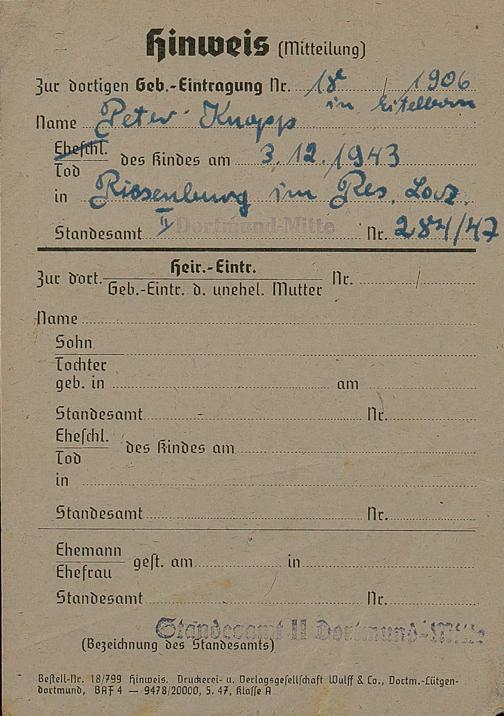 Hinweis (Mitteilung)
Zur dortigen Geb.-Eintragung Nr. 18 / 1906
in Eitelborn
Name Peter Knopp
Eheschl.
Tod des Kindes am 3.12.1943
in Riesenburg im Res. Laz.
Standesamt II Dortmund-Mitte Nr. 284/47
Zur dort. Heir.-Eintr. Nr. /
Geb.-Eintr. d. unehel. Mutter
Name
Sohn
Tochter
geb. in am
Standesamt Nr.
Eheschl.
Tod des Kindes am
in
Standesamt Nr.
Ehemann
Ehefrau gest. am in
Standesamt Nr.
Standesamt II Dortmund-Mitte
(Bezeichnung des Standesamts)
Bestell-Nr. 18/799 Hinweis. Druckerei- u. Verlagsgesellschaft Wulff & Co., Dortm.-Lütgen-
dortmund, BAF 4 — 9478/20000, 5. 47, Klasse A